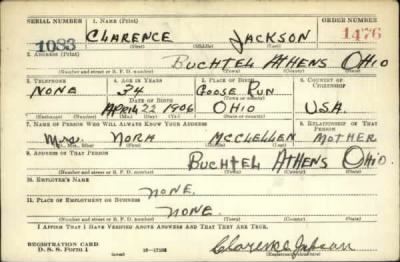 SERIAL NUMBER 1. NAME (Print) ORDER NUMBER
1083 CLARENCE JACKSON 1476
(First) (Middle) (Last)
2. ADDRESS (Print)
BUCHTEL ATHENS OHIO
(Number and street or R. F. D. number) (Town) (County) (State)
3. TELEPHONE 4. AGE IN YEARS 5. PLACE OF BIRTH 6. COUNTRY OF CITIZENSHIP
NONE 34 GOOSE RUN
DATE OF BIRTH (Town or county)
APRIL 22 1906 OHIO USA.
(Mo.) (Day) (Yr.) (State or country)
7. NAME OF PERSON WHO WILL ALWAYS KNOW YOUR ADDRESS 8. RELATIONSHIP OF THAT PERSON
Mrs. NORA MCCLELLEN MOTHER
(Mr., Mrs., Miss) (First) (Middle) (Last)
9. ADDRESS OF THAT PERSON
BUCHTEL ATHENS OHIO.
(Number and street or R. F. D. number) (Town) (County) (State)
10. EMPLOYER'S NAME
NONE.
11. PLACE OF EMPLOYMENT OR BUSINESS
NONE.
(Number and street or R. F. D. number) (Town) (County) (State)
I AFFIRM THAT I HAVE VERIFIED ABOVE ANSWERS AND THAT THEY ARE TRUE.
REGISTRATION CARD
D. S. S. Form 1 Clarence Jackson
(over) (Registrant's signature)